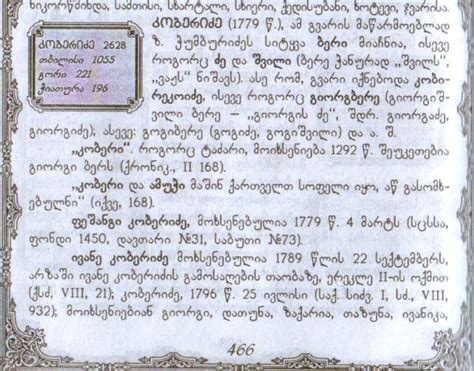 ნიკორწმინდა, სამთისი, სხარტალი, სხიერი, ქედისუბანი, ხოტევი, ჯვარისა.
კობერიძე 2628
თბილისი 1055
გორი 221
ჭიათურა 196
კობერიძე (1779 წ.), ამ გვარის მაწარმოებლად
ზ. ჭუმბურიძეს სიტყვა ბერი მიაჩნია, ისევე
როგორც ძე და შვილი (ბერე ჭანურად „შვილს",
„ვაჟს" ნიშავს). ასე რომ, გვარი იქნებოდა კობი-
რეკოიძე, ისევე როგორც გიორგბერე (გიორგიშ-
ვილი ბერე – „გიორგის ძე", შდრ. გიორგაძე,
გიორგიძე); ასევე: გოგიბერე (გოგიძე, გოგიშვილი) და ა. შ.
„კობერი". როგორც ტაძარი, მოიხსენიება 1292 წ. შეუკეთებია
გიორგი ბერს (ქრონიკ., II 168).
„კობერი და ამუჰი მაშინ ქართველთ სოფელი იყო, აწ გასომხ-
ებულნი" (იქვე, 168).
ფეშანგი კობერიძე, მოხსენებულია 1779 წ. 4 მარტს (სცსსა,
ფონდი 1450, დავთარი №31, საბუთი №73).
ივანე კობერიძე მოხსენებულია 1789 წლის 22 სექტემბერს,
არზაში ივანე კობერიძის გამოსაღების თაობაზე, ერეკლე II-ის ოქმით
(ქსძ, VIII, 21); კობერიძე, 1796 წ. 25 ივლისი (საქ. სიძვ. I, სძ., VIII,
932); მოიხსენიებიან გიორგი, დათუნა, ზაქარია, თაზუნა, ივანიკა,
466